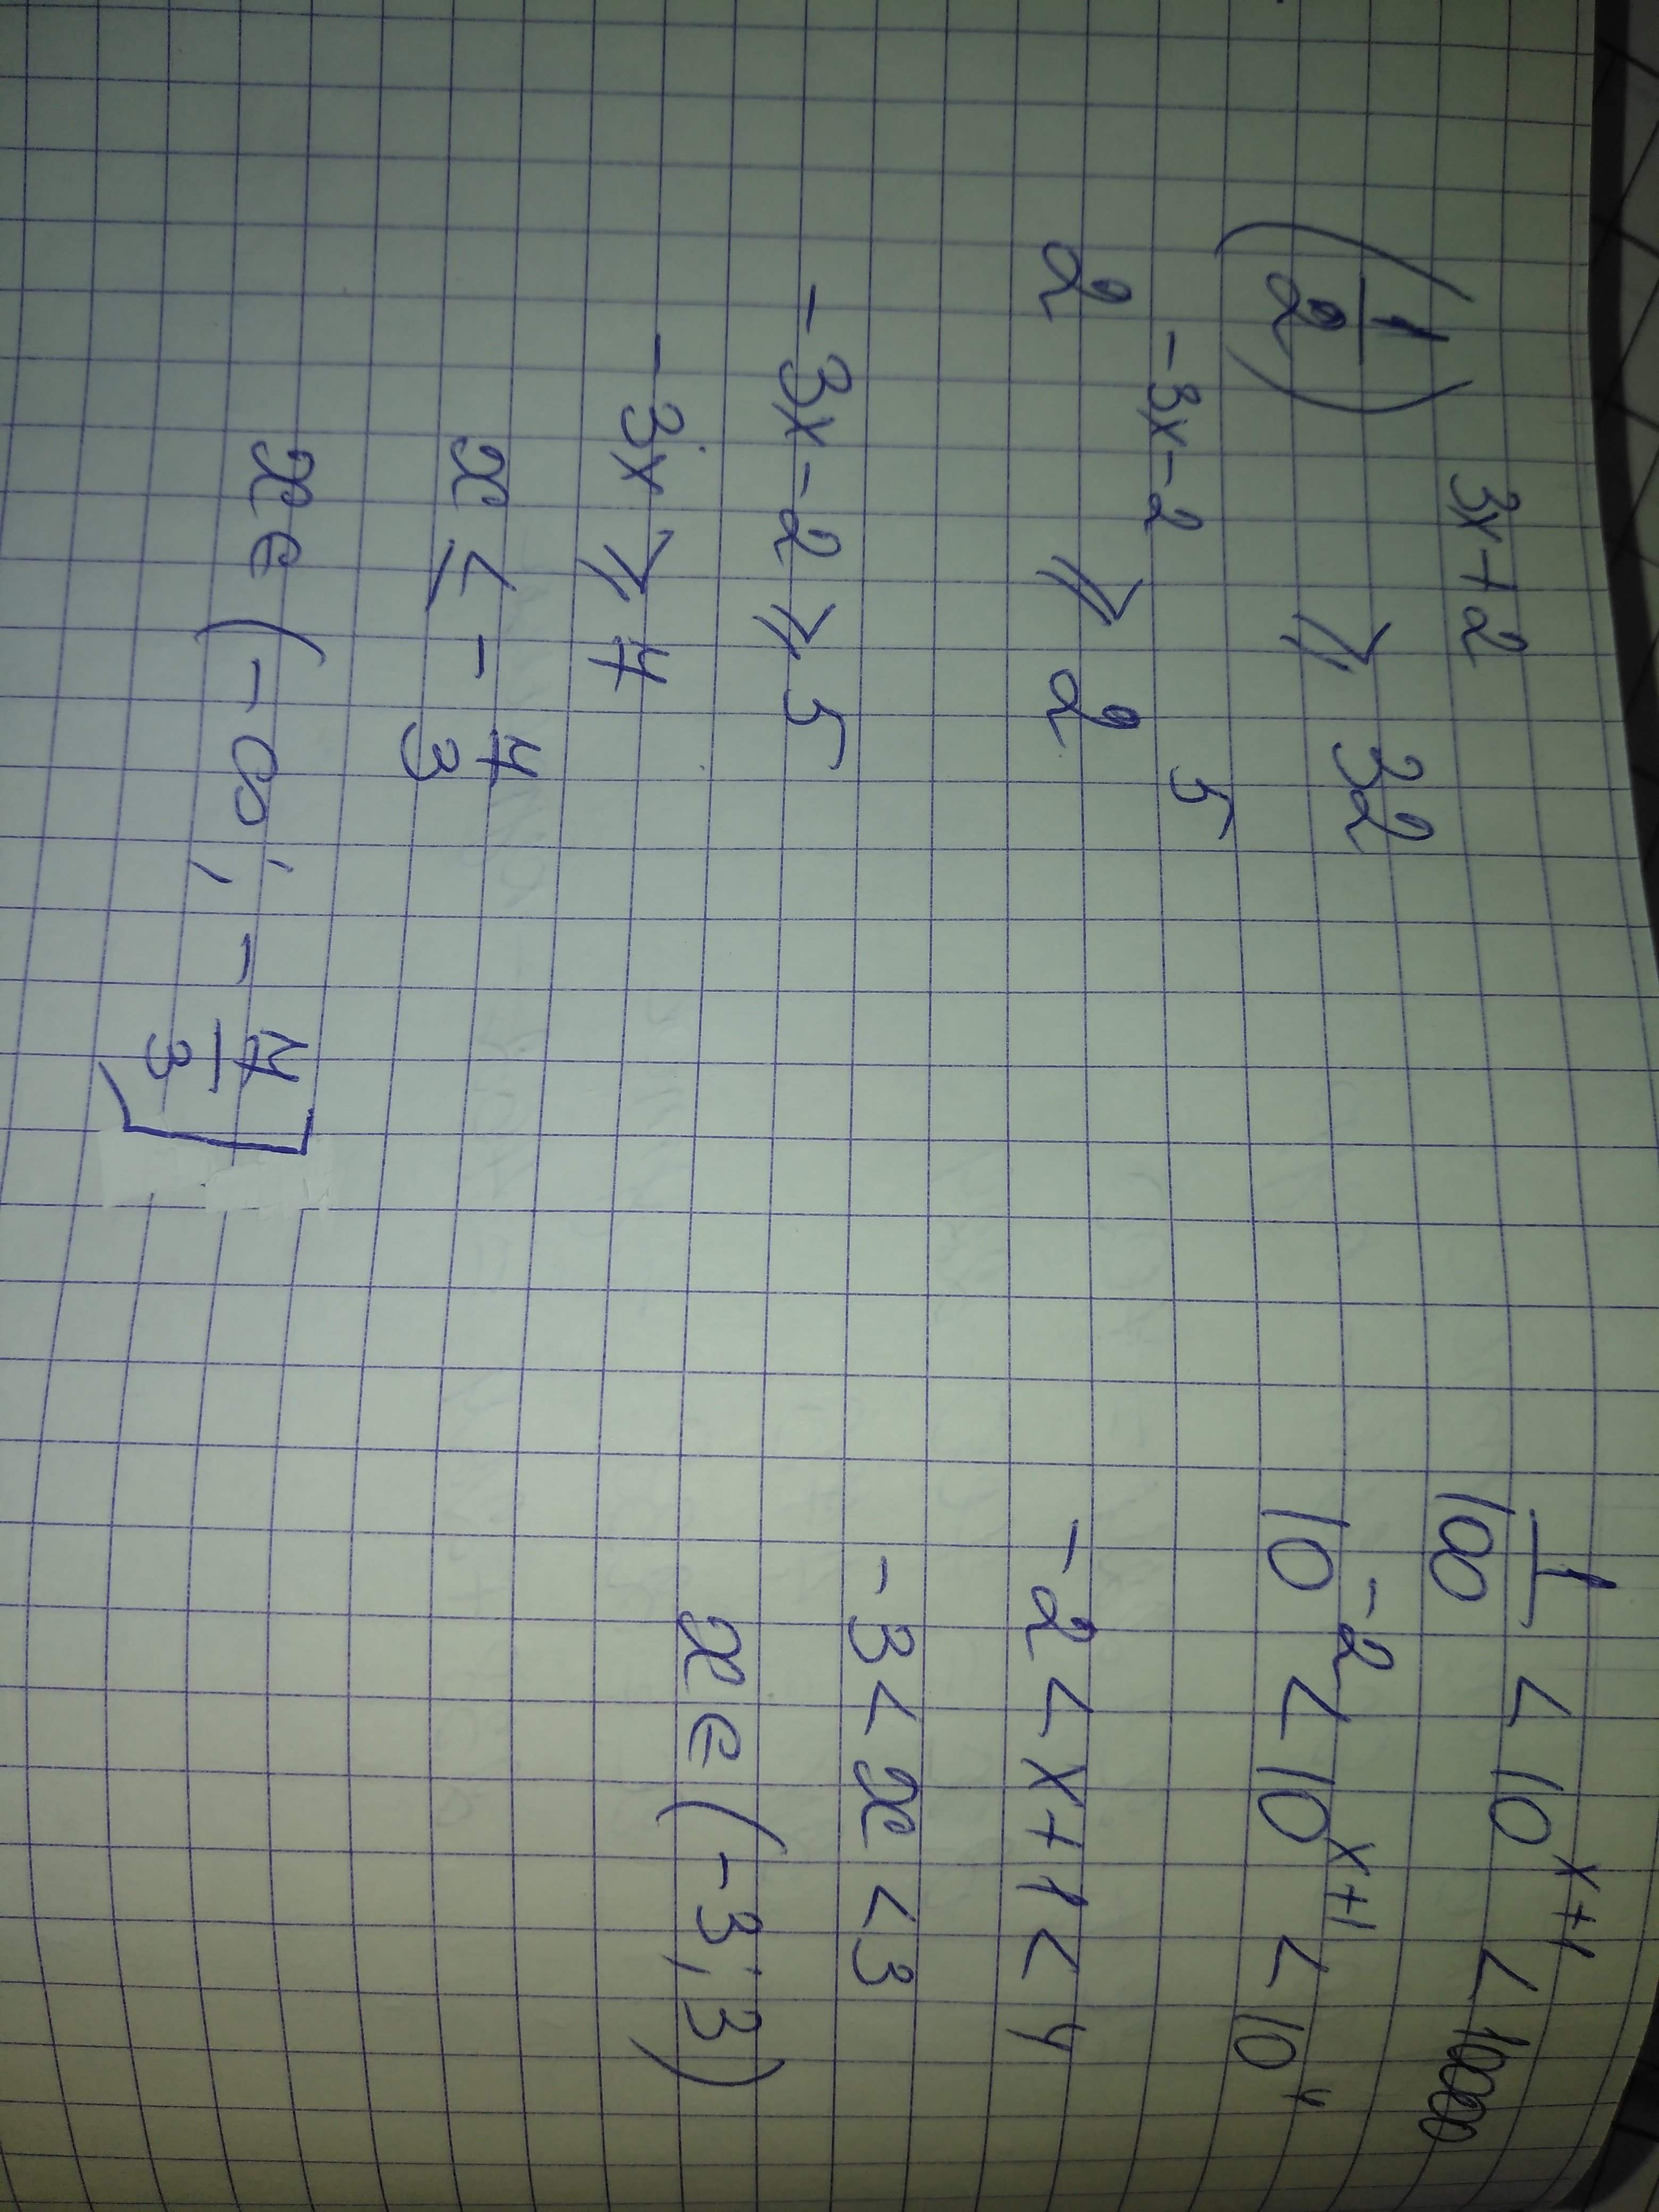 (1/2)^(3x+2) ⩾ 32
2^(-3x-2) ⩾ 2^5
-3x-2 ⩾ 5
-3x ⩾ 7
x ≤ -7/3
x ∈ (-∞; -7/3]
1/100 < 10^(x+1) < 10000
10^(-2) < 10^(x+1) < 10^4
-2 < x+1 < 4
-3 < x < 3
x ∈ (-3; 3)